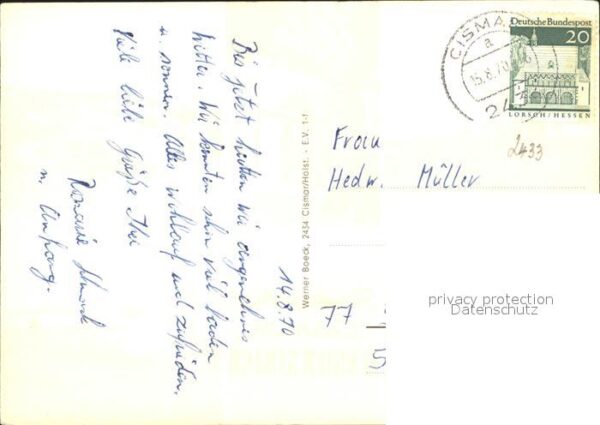 14.8.70
Bis jetzt hatten wir angenehmes
Wetter. Wir konnten sehr viel baden
u. sonnen. Alles wohlauf und zufrieden.
Viele liebe Grüße Ihre
Rosarie
u. Anhang.
Werner Boeck, 2434 Cismar/Holst. - E.V. 1-1
CISMA
a
15.8.70
24
Deutsche Bundespost
20
LORSCH/HESSEN
2433
Frau
Hedw. Müller
77
5
privacy protection
Datenschutz